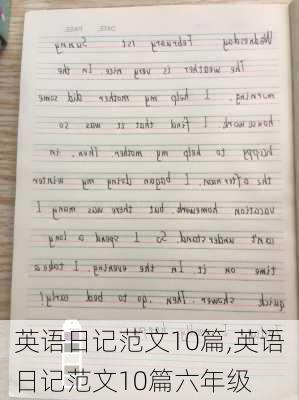 Wednesday February 1st Sunny
The weather is very nice. In the
morning, I help my mother did some
housework. I find that it was so
happy to help my mother. Then, in
the afternoon, I bagan doing my winter
vacation homework, but there was many I
can't understand. So I spend a long
time on it. In the evening, I take a
quick shower. Then go to bed early!
英语日记范文10篇,英语
日记范文10篇六年级